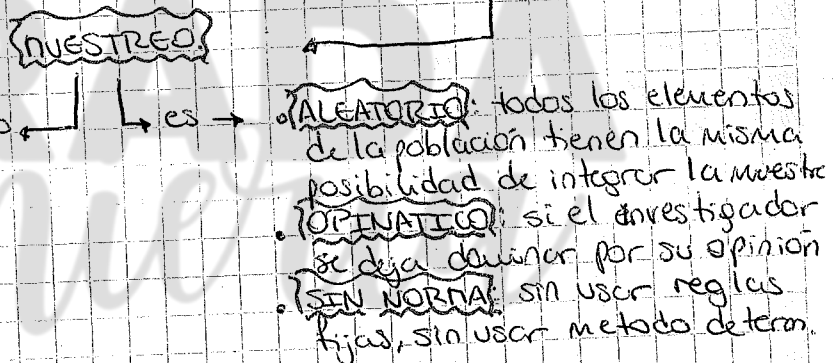 MUESTREO
o ← es → • ALEATORIO: todos los elementos
de la población tienen la misma
posibilidad de integrar la muestra
• OPINATICO: si el investigador
se deja dominar por su opinión
• SIN NORMA: sin usar reglas
fijas, sin usar metodo determ.